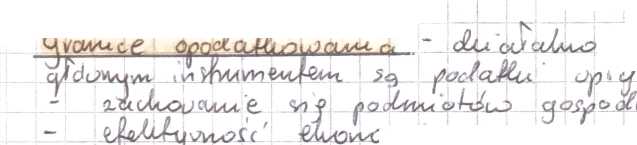 granice opodatkowania - działalno
głównym instrumentem są podatki opisy
- zachowanie się podmiotów gospod
- efektywność ekono